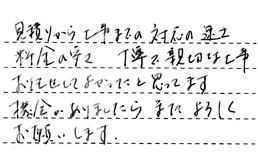 見積りから工事までの対応の速さ
料金の安さ 丁寧で親切な工事
お任せしてよかったと思ってます
機会がありましたら またよろしく
お願いします.